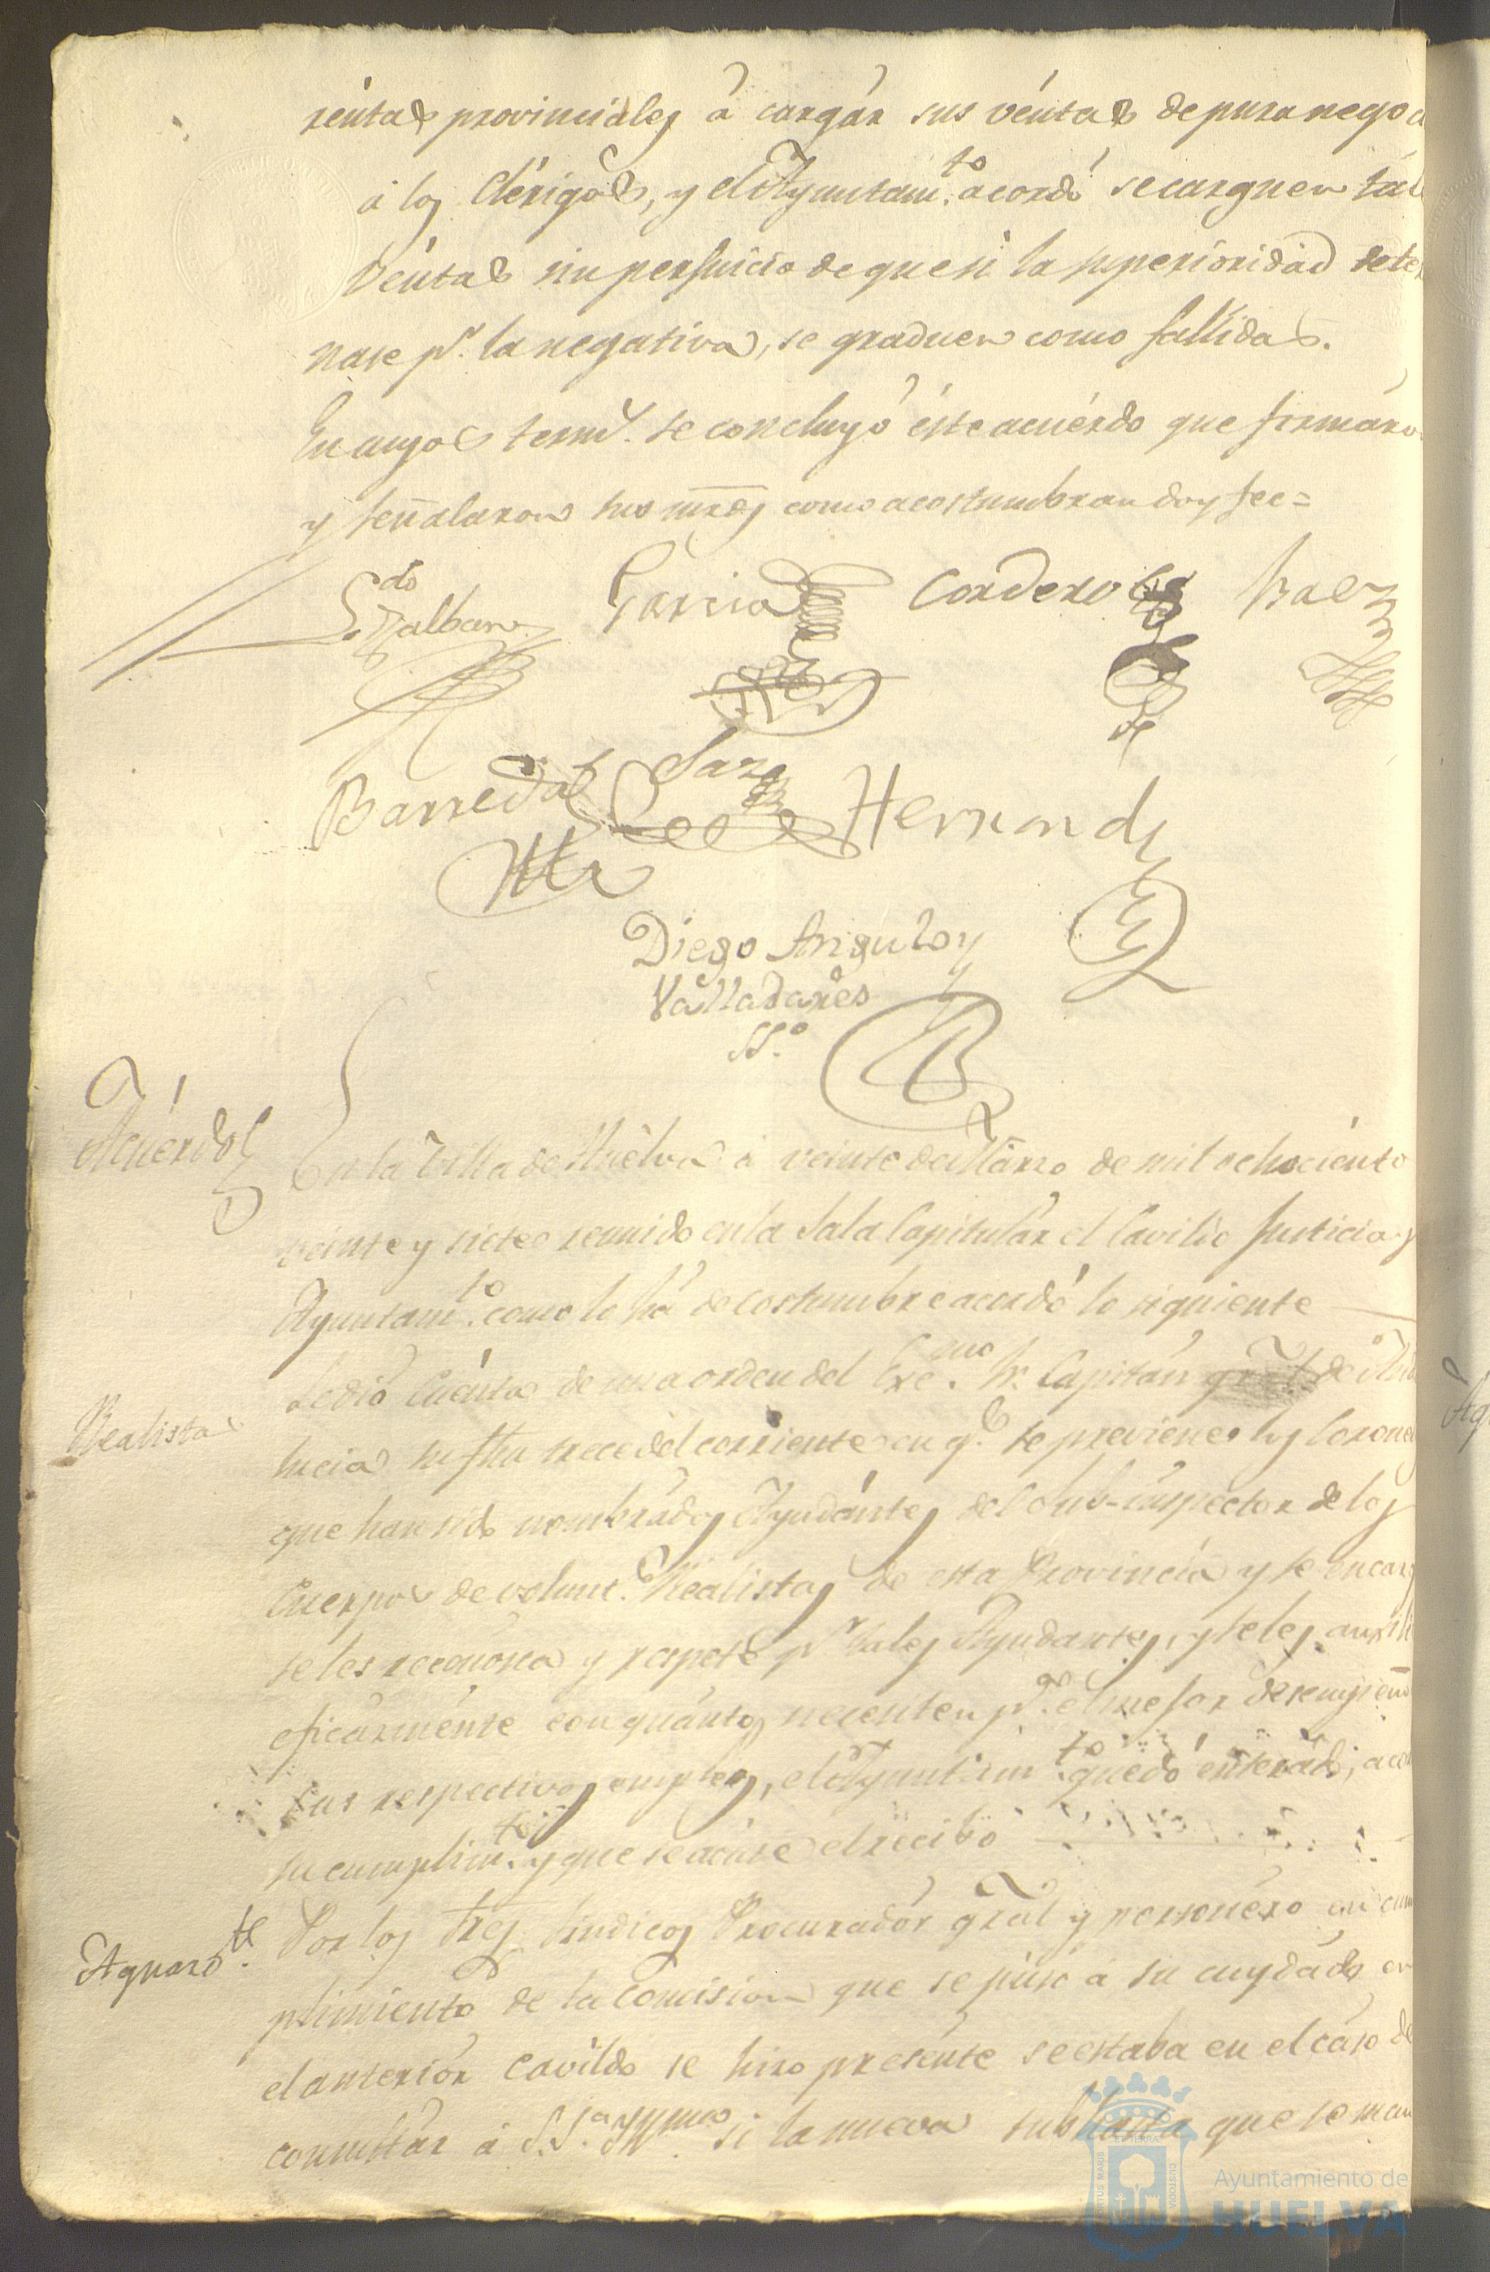 rentas provinciales á cargár sus véntas de pura nego
á los Clérigos, y el Ayuntam.to acordó se carguen tal
véntas sin perjuicio de que si la superioridad dete
nase p.r la negativa, se graduen como fallidas.
En cuyos term.s se concluyó éste acuérdo que firmáro
y señalaron sus mrds como acostumbran doy fee=
Galban Garcia Cordero Baez
Barreda Saez Hernandz
Diego Angulo y
Valladares
SS.º
Acuérdo
En la Villa de Huelva á veinte de Márzo de mil ochociénto
veinte y siete reunido en la Sala Capitulár el Cavildo Justicia y
Ayuntam.to como lo há de costumbre acordó lo siguiente
Realistas
Se dió cuénta de una orden del Exc.mo Sr. Capitán gral de Anda
lucia su fha trece del corriente en q.e se previene los Corone
que han sido nombrádos Ayudántes del Sub-inspector de los
Cuerpos de volunt.s Realistas de esta Provincia y se encarg
se les reconosca y respete p.r tales Ayudantes, y se les auxili
eficázmente con quánto necesiten p.a el mejor desempeño
sus respectivos empleos, el Ayuntam.to quedó enterado, aco
su cumplim.to y que se acúse el recibo
Aguard.te
Por los Sres Sindicos Procuradór grál y personéro en cum
plimiento de la comision que se puso á su cuydádo en
el anteriór Cavildo se hizo presénte se estaba en el cáso de
consultár á S.S.a Yllma si la nueva subhasta que se man
Ayuntamiento de
HUELVA